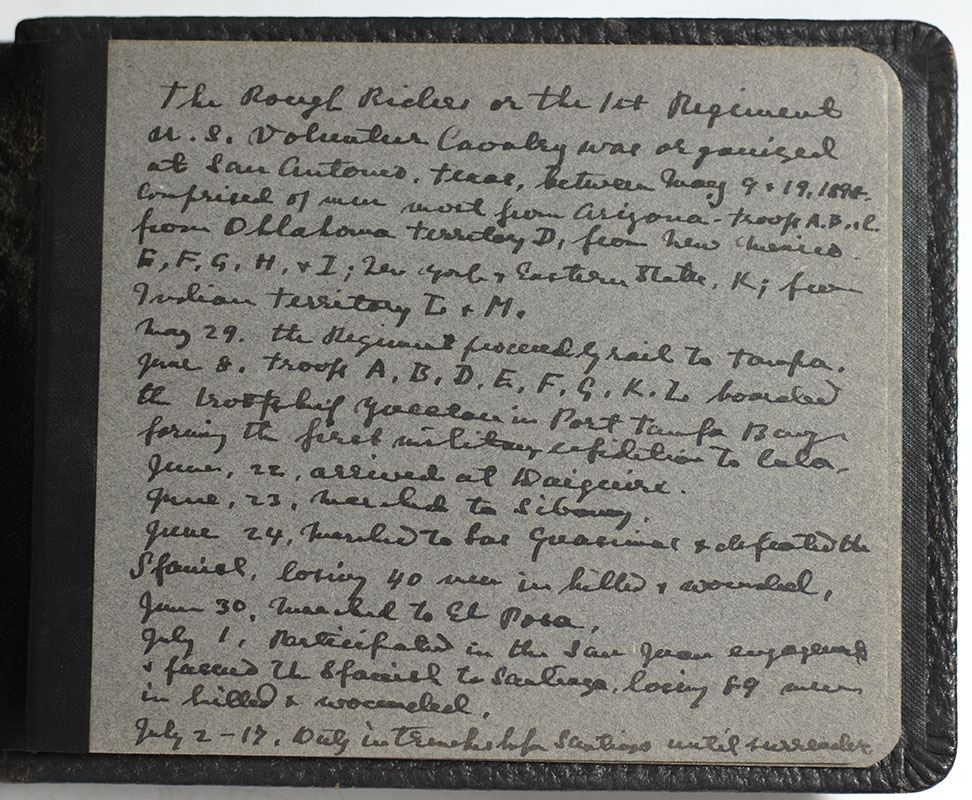 The Rough Riders or the 1st Regiment
U.S. Volunteer Cavalry was organized
at San Antonio, Texas, between May 9 & 19, 1898.
Comprised of men most from Arizona - troops A.B. & C.
from Oklahoma territory D, from New Mexico
E, F, G, H, & I; New York & Eastern States, K; from
Indian territory L & M.
May 29. the Regiment proceeded by rail to Tampa.
June 8. troops A, B, D, E, F, G, K. L boarded
the troopship Yucatan in Port Tampa Bay
forming the first military expedition to Cuba.
June, 22, arrived at Daiquiri.
June, 23, marched to Siboney.
June 24, marched to Las Guasimas & defeated the
Spanish, losing 40 men in killed & wounded,
June 30, marched to El Posa,
July 1, Participated in the San Juan engagement
& forced the Spanish to Santiago, losing 89 men
in killed & wounded,
July 2-17, Duty in trenches before Santiago until surrender